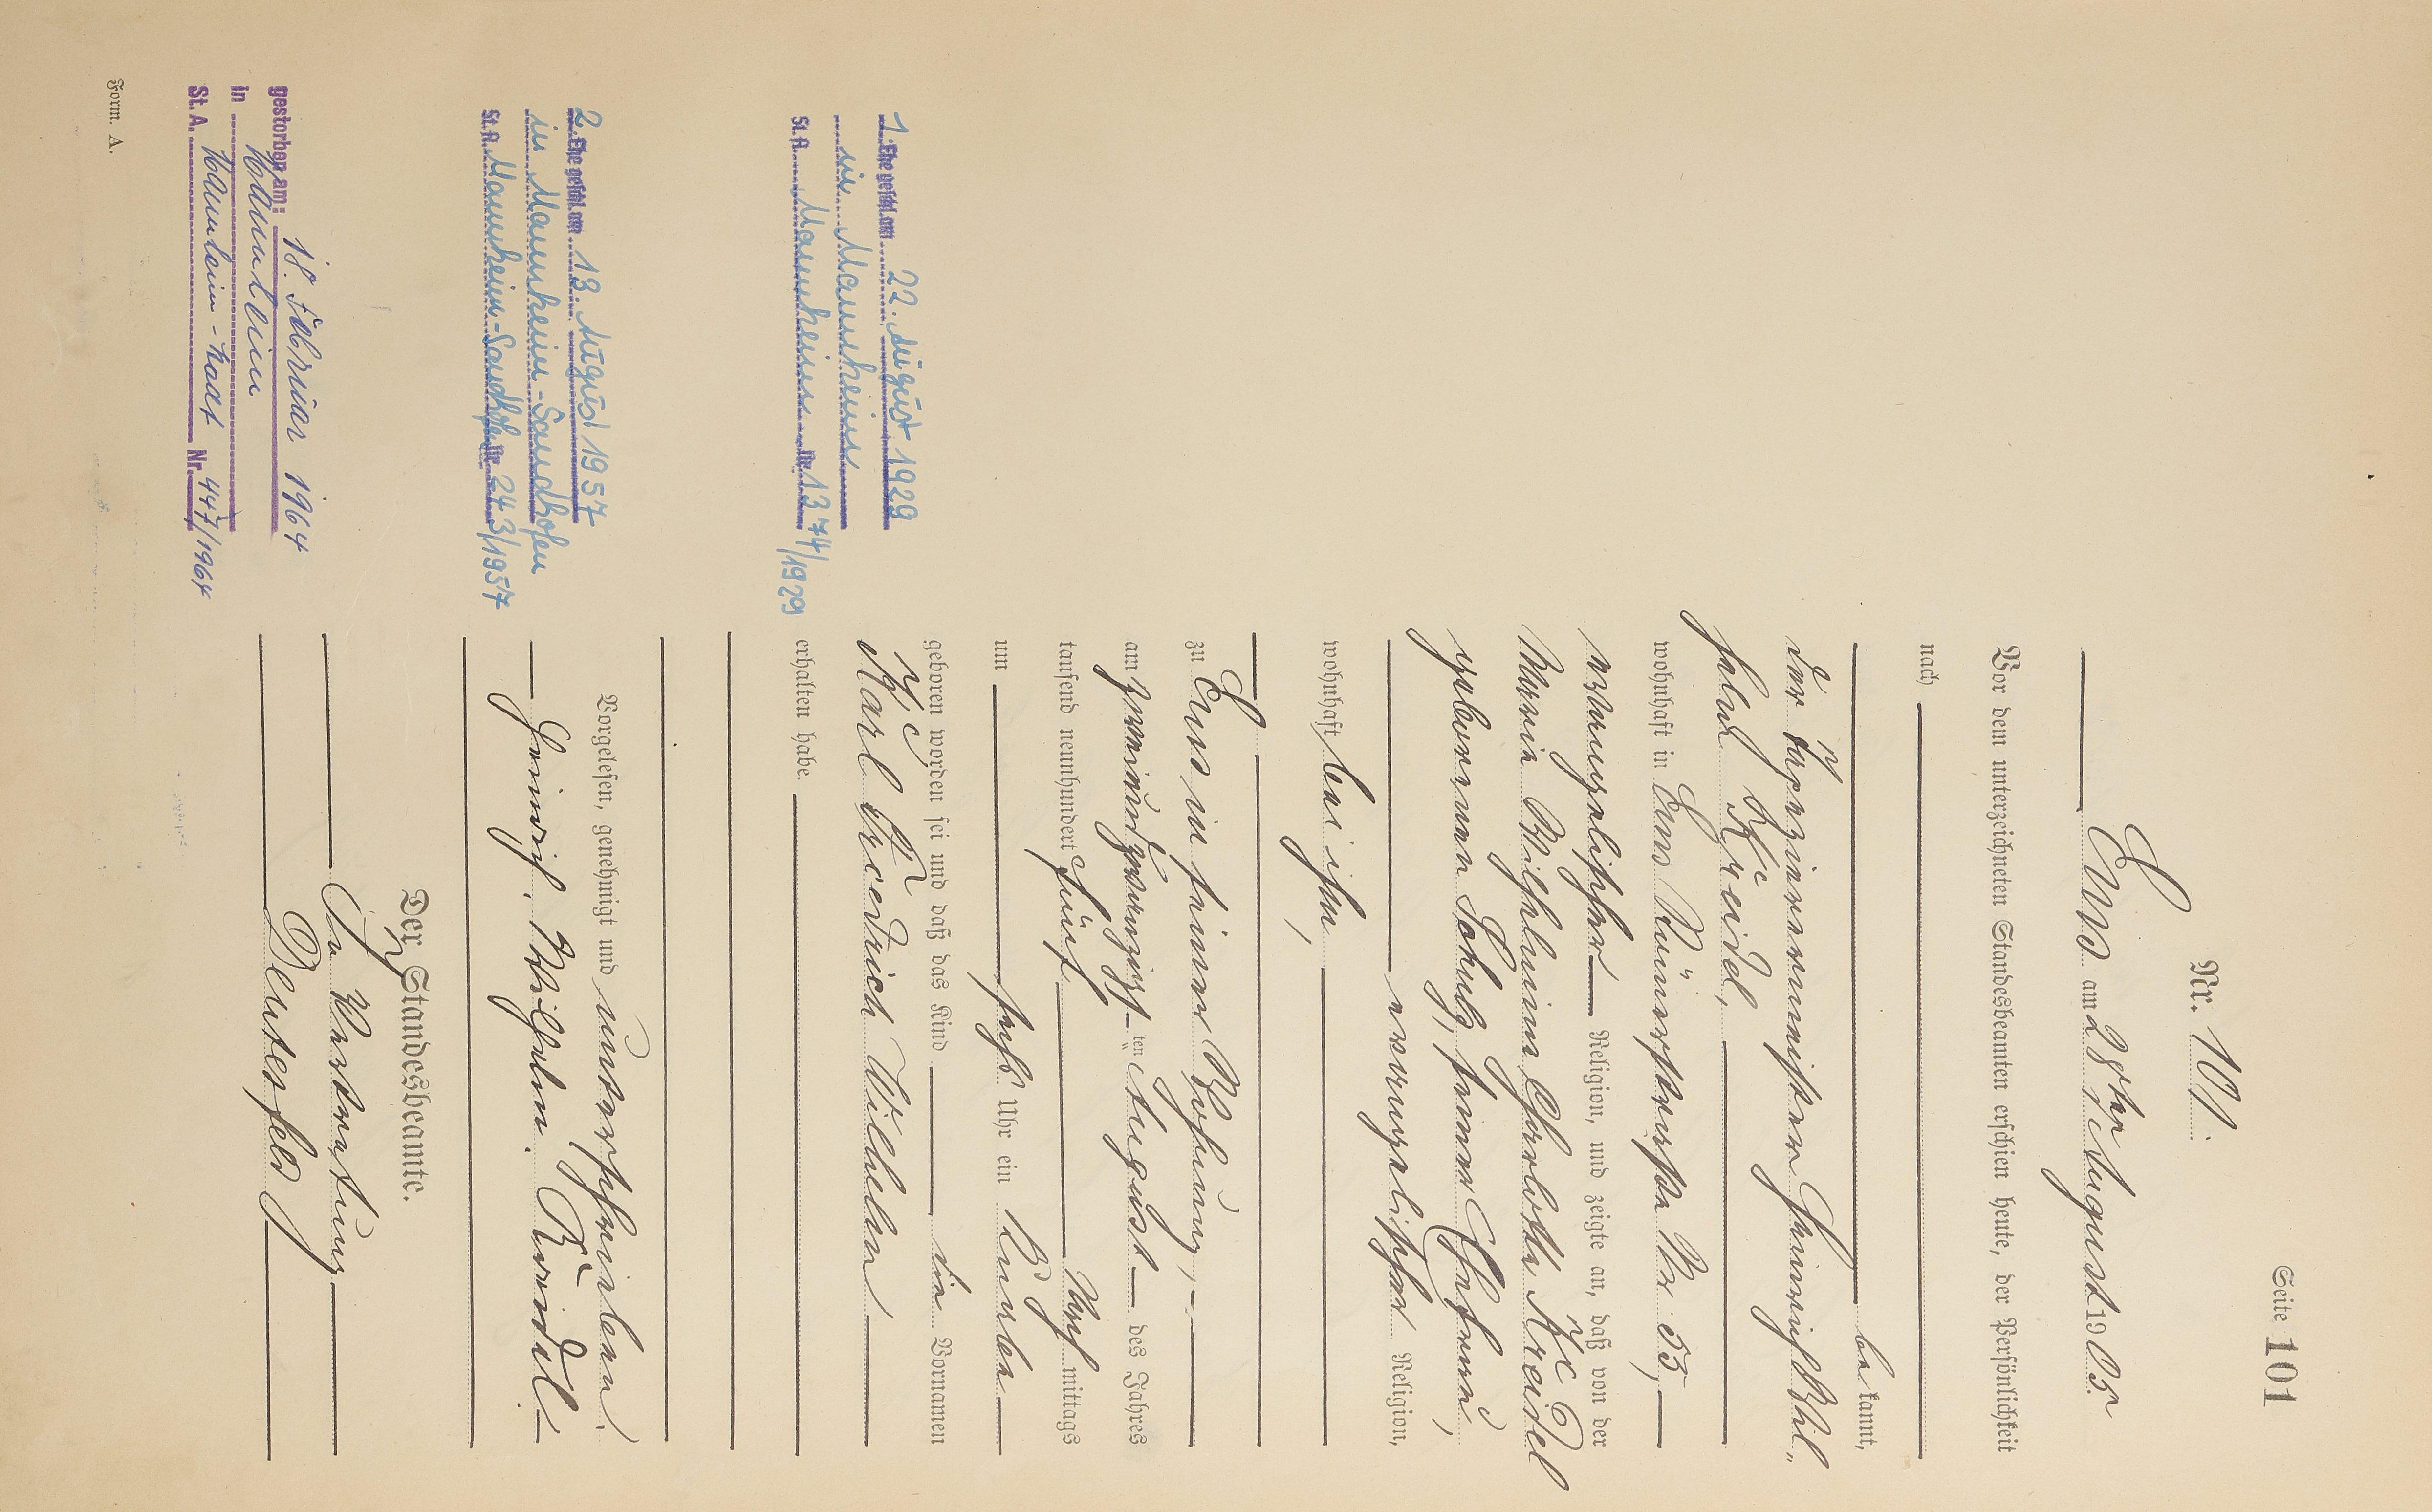 Seite 101
Nr. 101.
Ems am 28ten August 1905.
Vor dem unterzeichneten Standesbeamten erschien heute, der Persönlichkeit
nach
bekannt,
der Tapezierermeister Heinrich Wil„
helm Kreidel,
wohnhaft in Ems Römerstraße Nr. 53,
evangelischer Religion, und zeigte an, daß von der
Maria Wilhelmine Charlotte Kreidel
geborenen Schulz, seiner Ehefrau,
evangelischer Religion,
wohnhaft bei ihm,
zu Ems in seiner Wohnung,
am zweiundzwanzigsten August des Jahres
tausend neunhundert fünf Nach mittags
um sechs Uhr ein Knabe
geboren worden sei und daß das Kind die Vornamen
Karl Friedrich Wilhelm
erhalten habe.
Vorgelesen, genehmigt und unterschrieben.
Heinrich. Wilhelm. Kreidel.
Der Standesbeamte.
In Vertretung
Deusfeld
1. Ehe geschl. am 22. August 1929
in Mannheim
St. A. Mannheim Nr. 1374/1929
2. Ehe geschl. am 13. August 1957
in Mannheim-Sandhofen
St. A. Mannheim-Sandhofen Nr. 243/1957
gestorben am: 18. Februar 1964
in Mannheim
St. A. Mannheim Nr. 447/1964
Form. A.